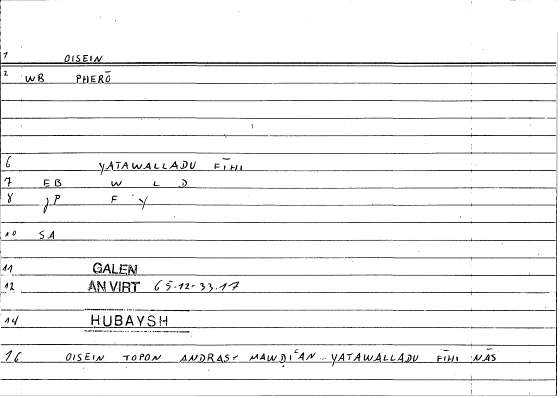 1 OISEIN
2 WB PHERŌ
6 YATAWALLADU FĪHI
7 EB W L D
8 JP F Y
10 SA
11 GALEN
12 AN VIRT 65.12-33.17
14 HUBAYSH
16 OISEIN TOPON ANDRAS- MAWḌIʿAN YATAWALLADU FĪHI NĀS